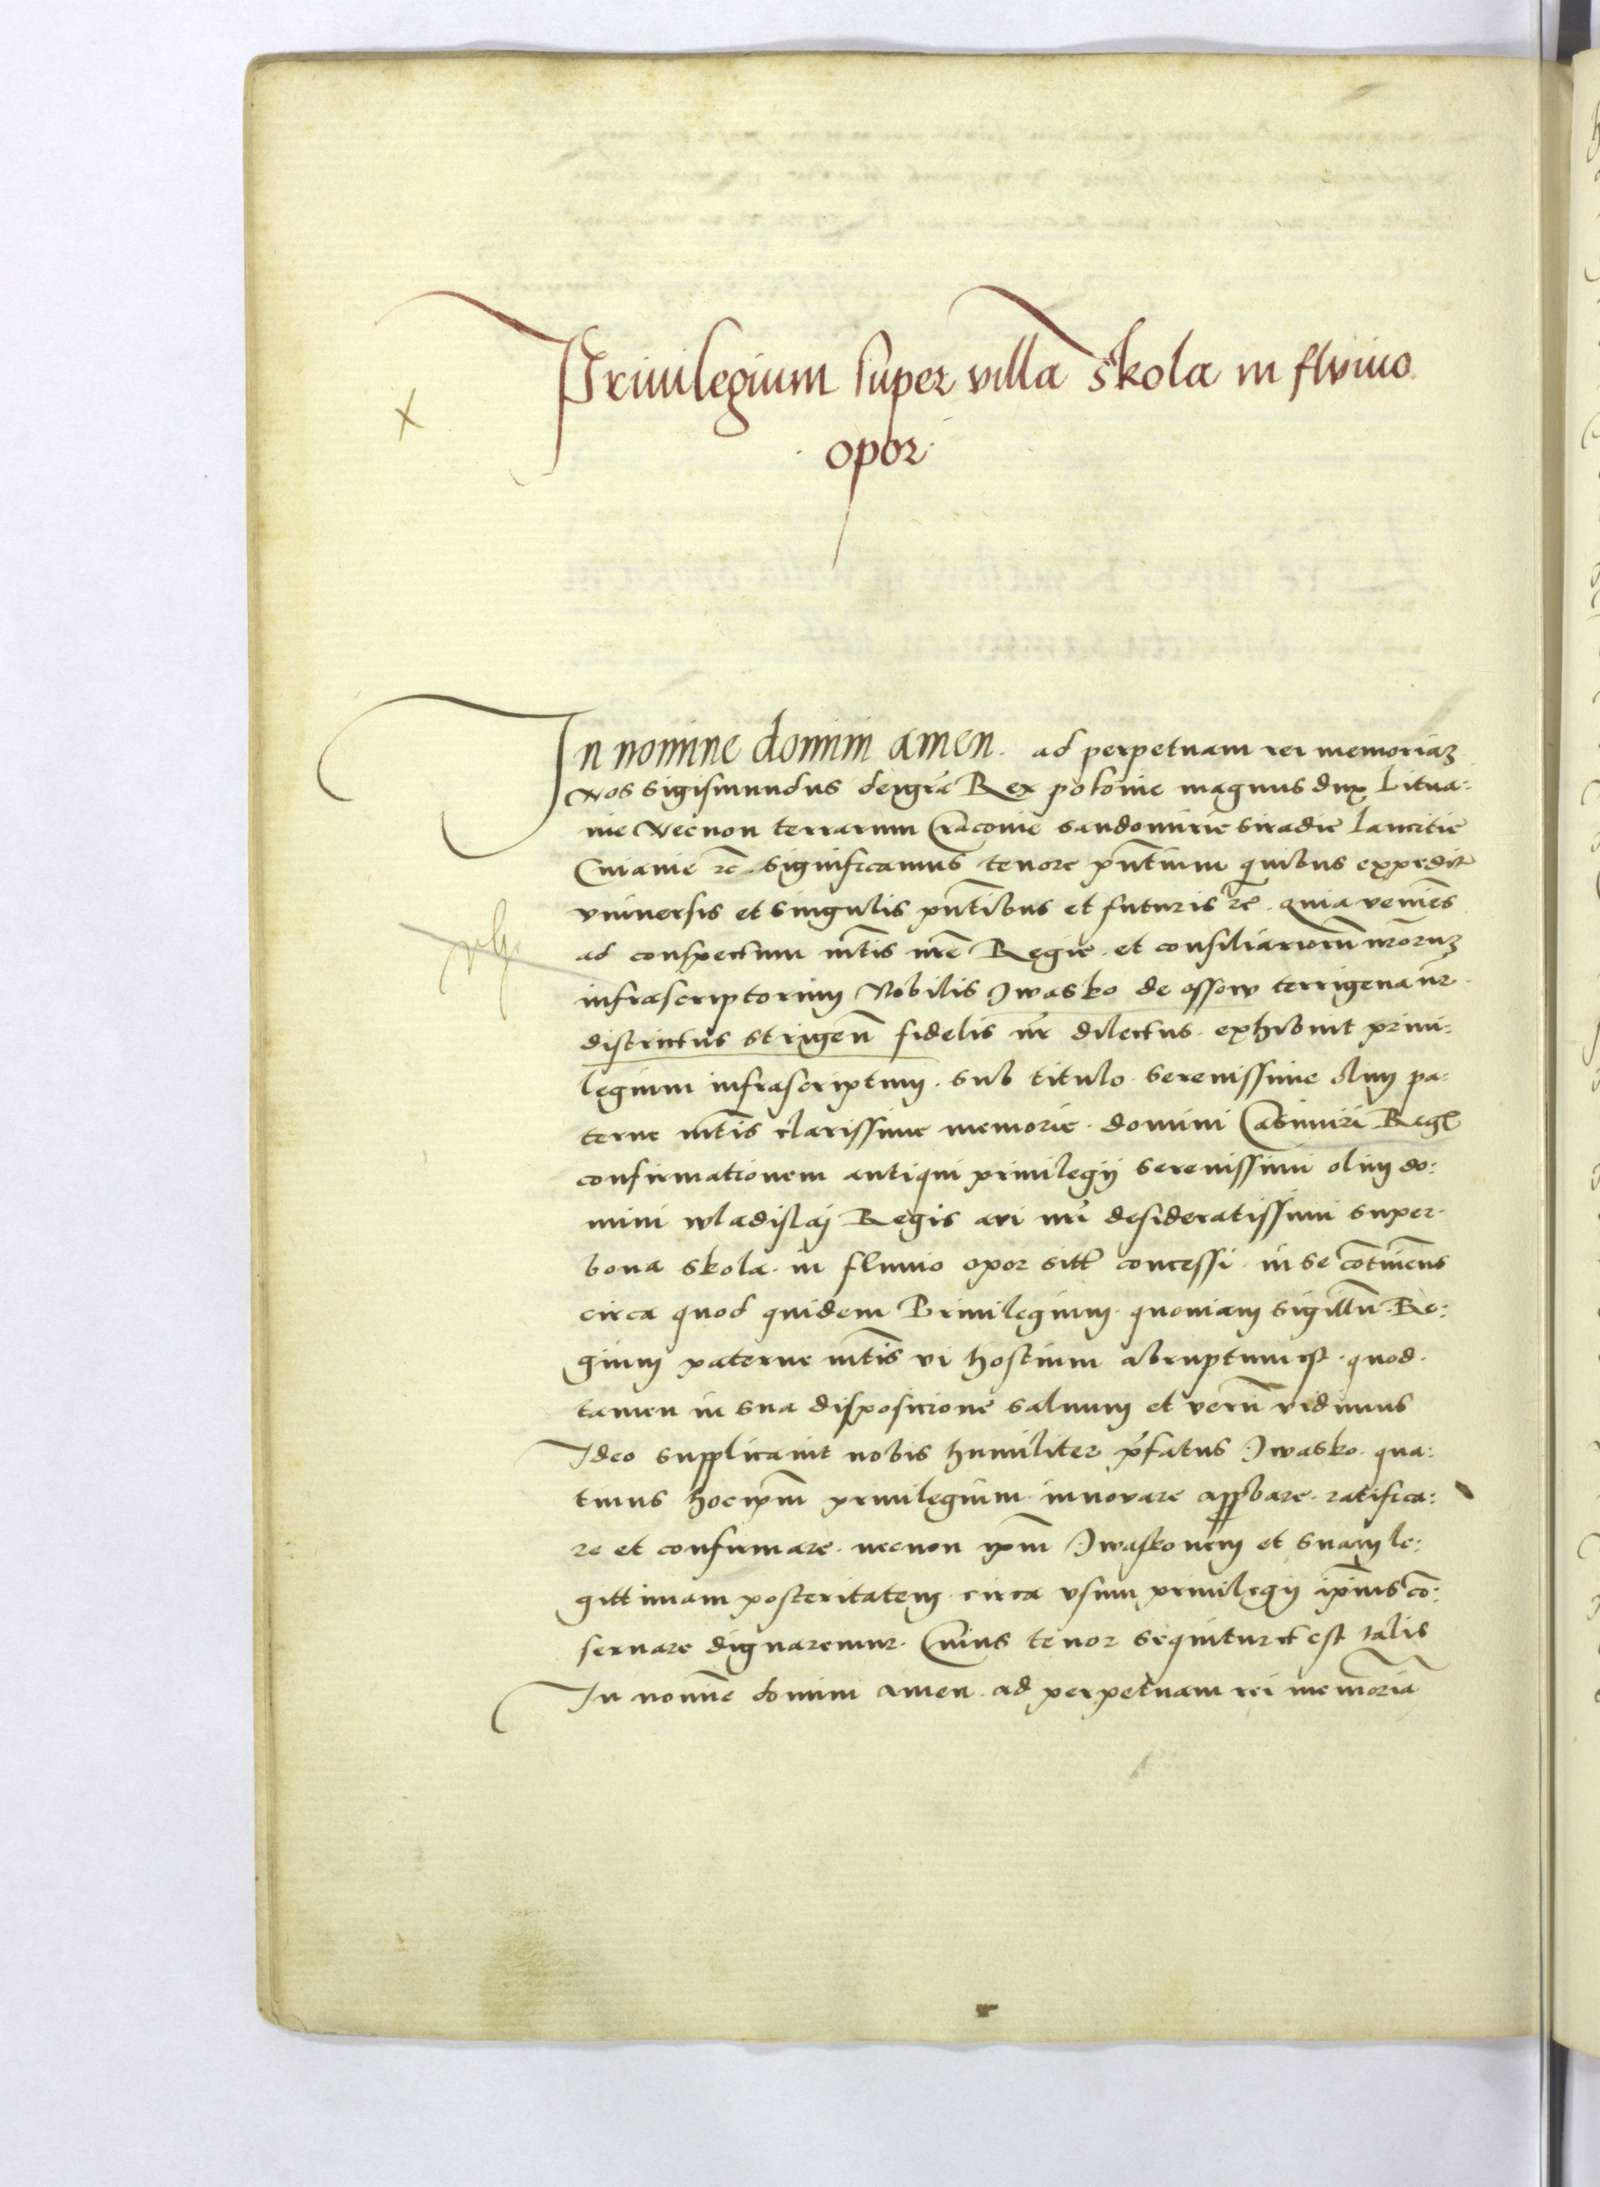 Priuilegium super villa skola in fluuio
opor
In nomine domini amen. ad perpetuam rei memoriaz
Nos Sigismundus dei gra Rex polonie magnus dux Litua:
nie Necnon terrarum Cracouie Sandomirie Siradie Lancicie
Cuiauie rc Significamus tenore pntium quibus expedit
vniuersis et singulis pntibus et futuris rc. quia veniens
ad conspectum mtis nre Regie. et consiliariorum nrorum
infrascriptorum Nobilis Iwasko de ossow terrigena nr
districtus strigen fidelis nr dilectus. exhibuit priui:
legium infrascriptum. sub titulo. serenissime olim pa:
terne mtis clarissime memorie. domini Casimiri Regis
confirmationem antiqui priuilegij serenissimi olim do:
mini wladislaj Regis aui nri desideratissimi super.
bona skola. in fluuio opor sitt concessi. in se continens
circa quod quidem Priuilegium. quoniam sigillu. Re:
gium paterne mtis vi hostium abruptum est. quod.
tamen in sua disposicione saluum et veru vidimus
Ideo supplicauit nobis humiliter pfatus Iwasko. qua:
tinus hoc ipm priuilegium. innouare approbare. ratifica:
re et confirmare. necnon ipm Iwaskonem et suam le:
gittimam posteritatem. circa vsum priuilegij ipius co:
seruare dignaremur. Cuius tenor sequitur et est talis
In nomine domini amen. ad perpetuam rei memoria